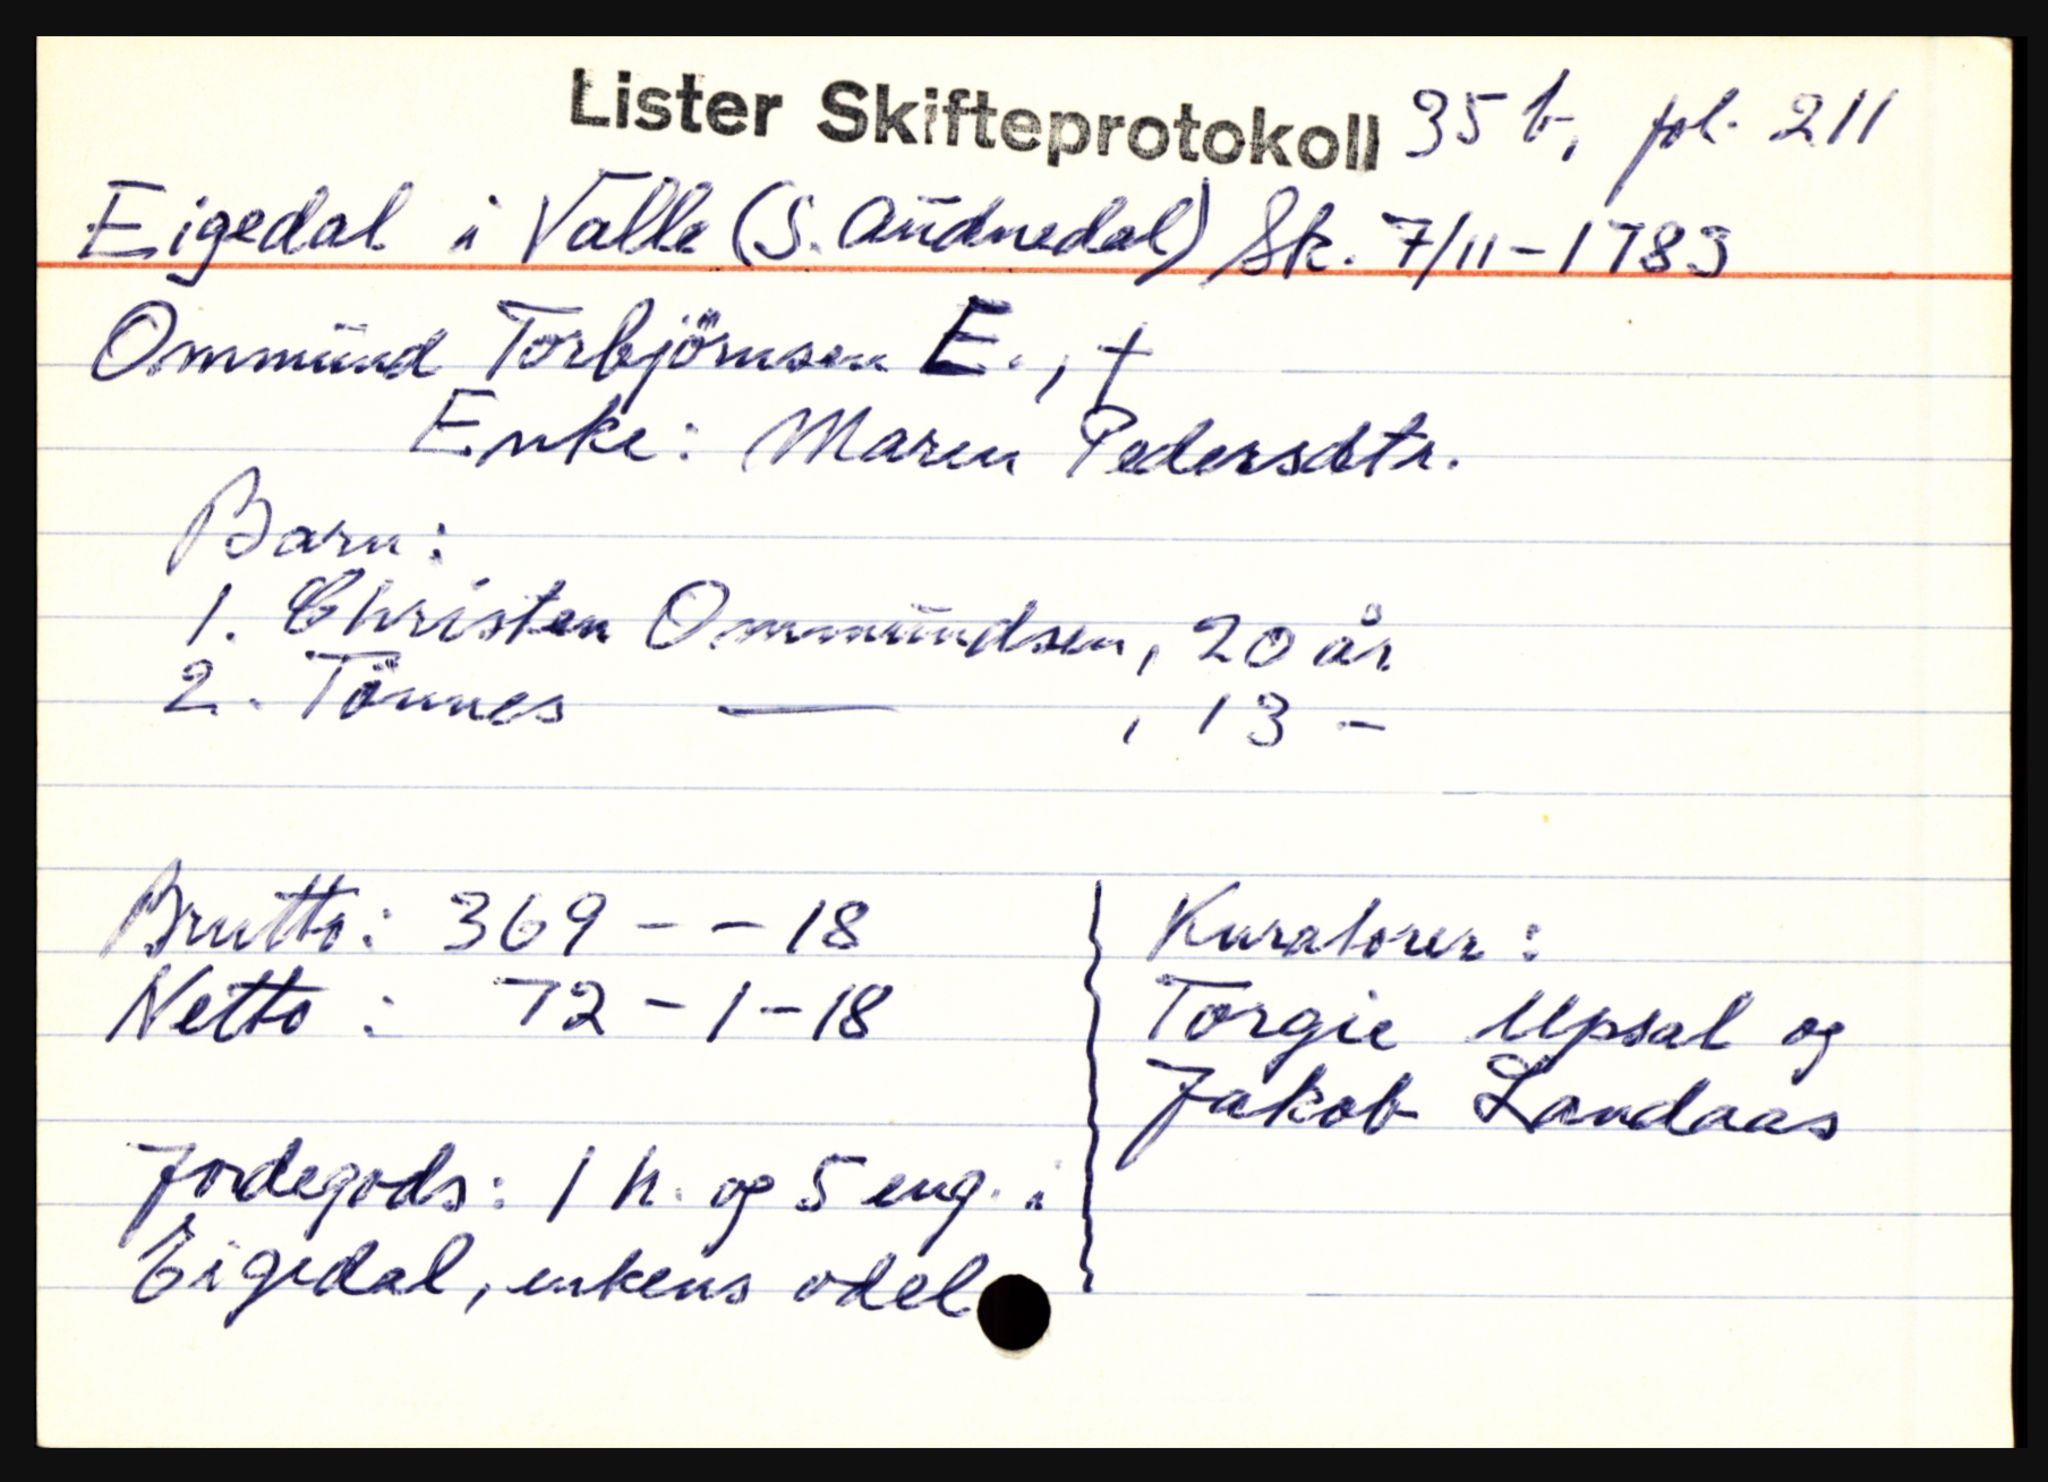 Lister Skifteprotokoll 35 b, fol. 211
Eigedal i Valle (S. Audnedal) Sk. 7/11-1783
Ommund Torbjörnsen E., †
Enke: Maren Pedersdtr.
Barn:
1. Christen Ommundsen, 20 år
2. Tönnes — , 13 -
Brutto: 369 - - 18
Netto: 72 - 1 - 18
Jordegods: 1 h. og 5 eng. i
Eigedal, enkens odel
Kuratorer:
Torgie Upsal og
Jakob Landaas